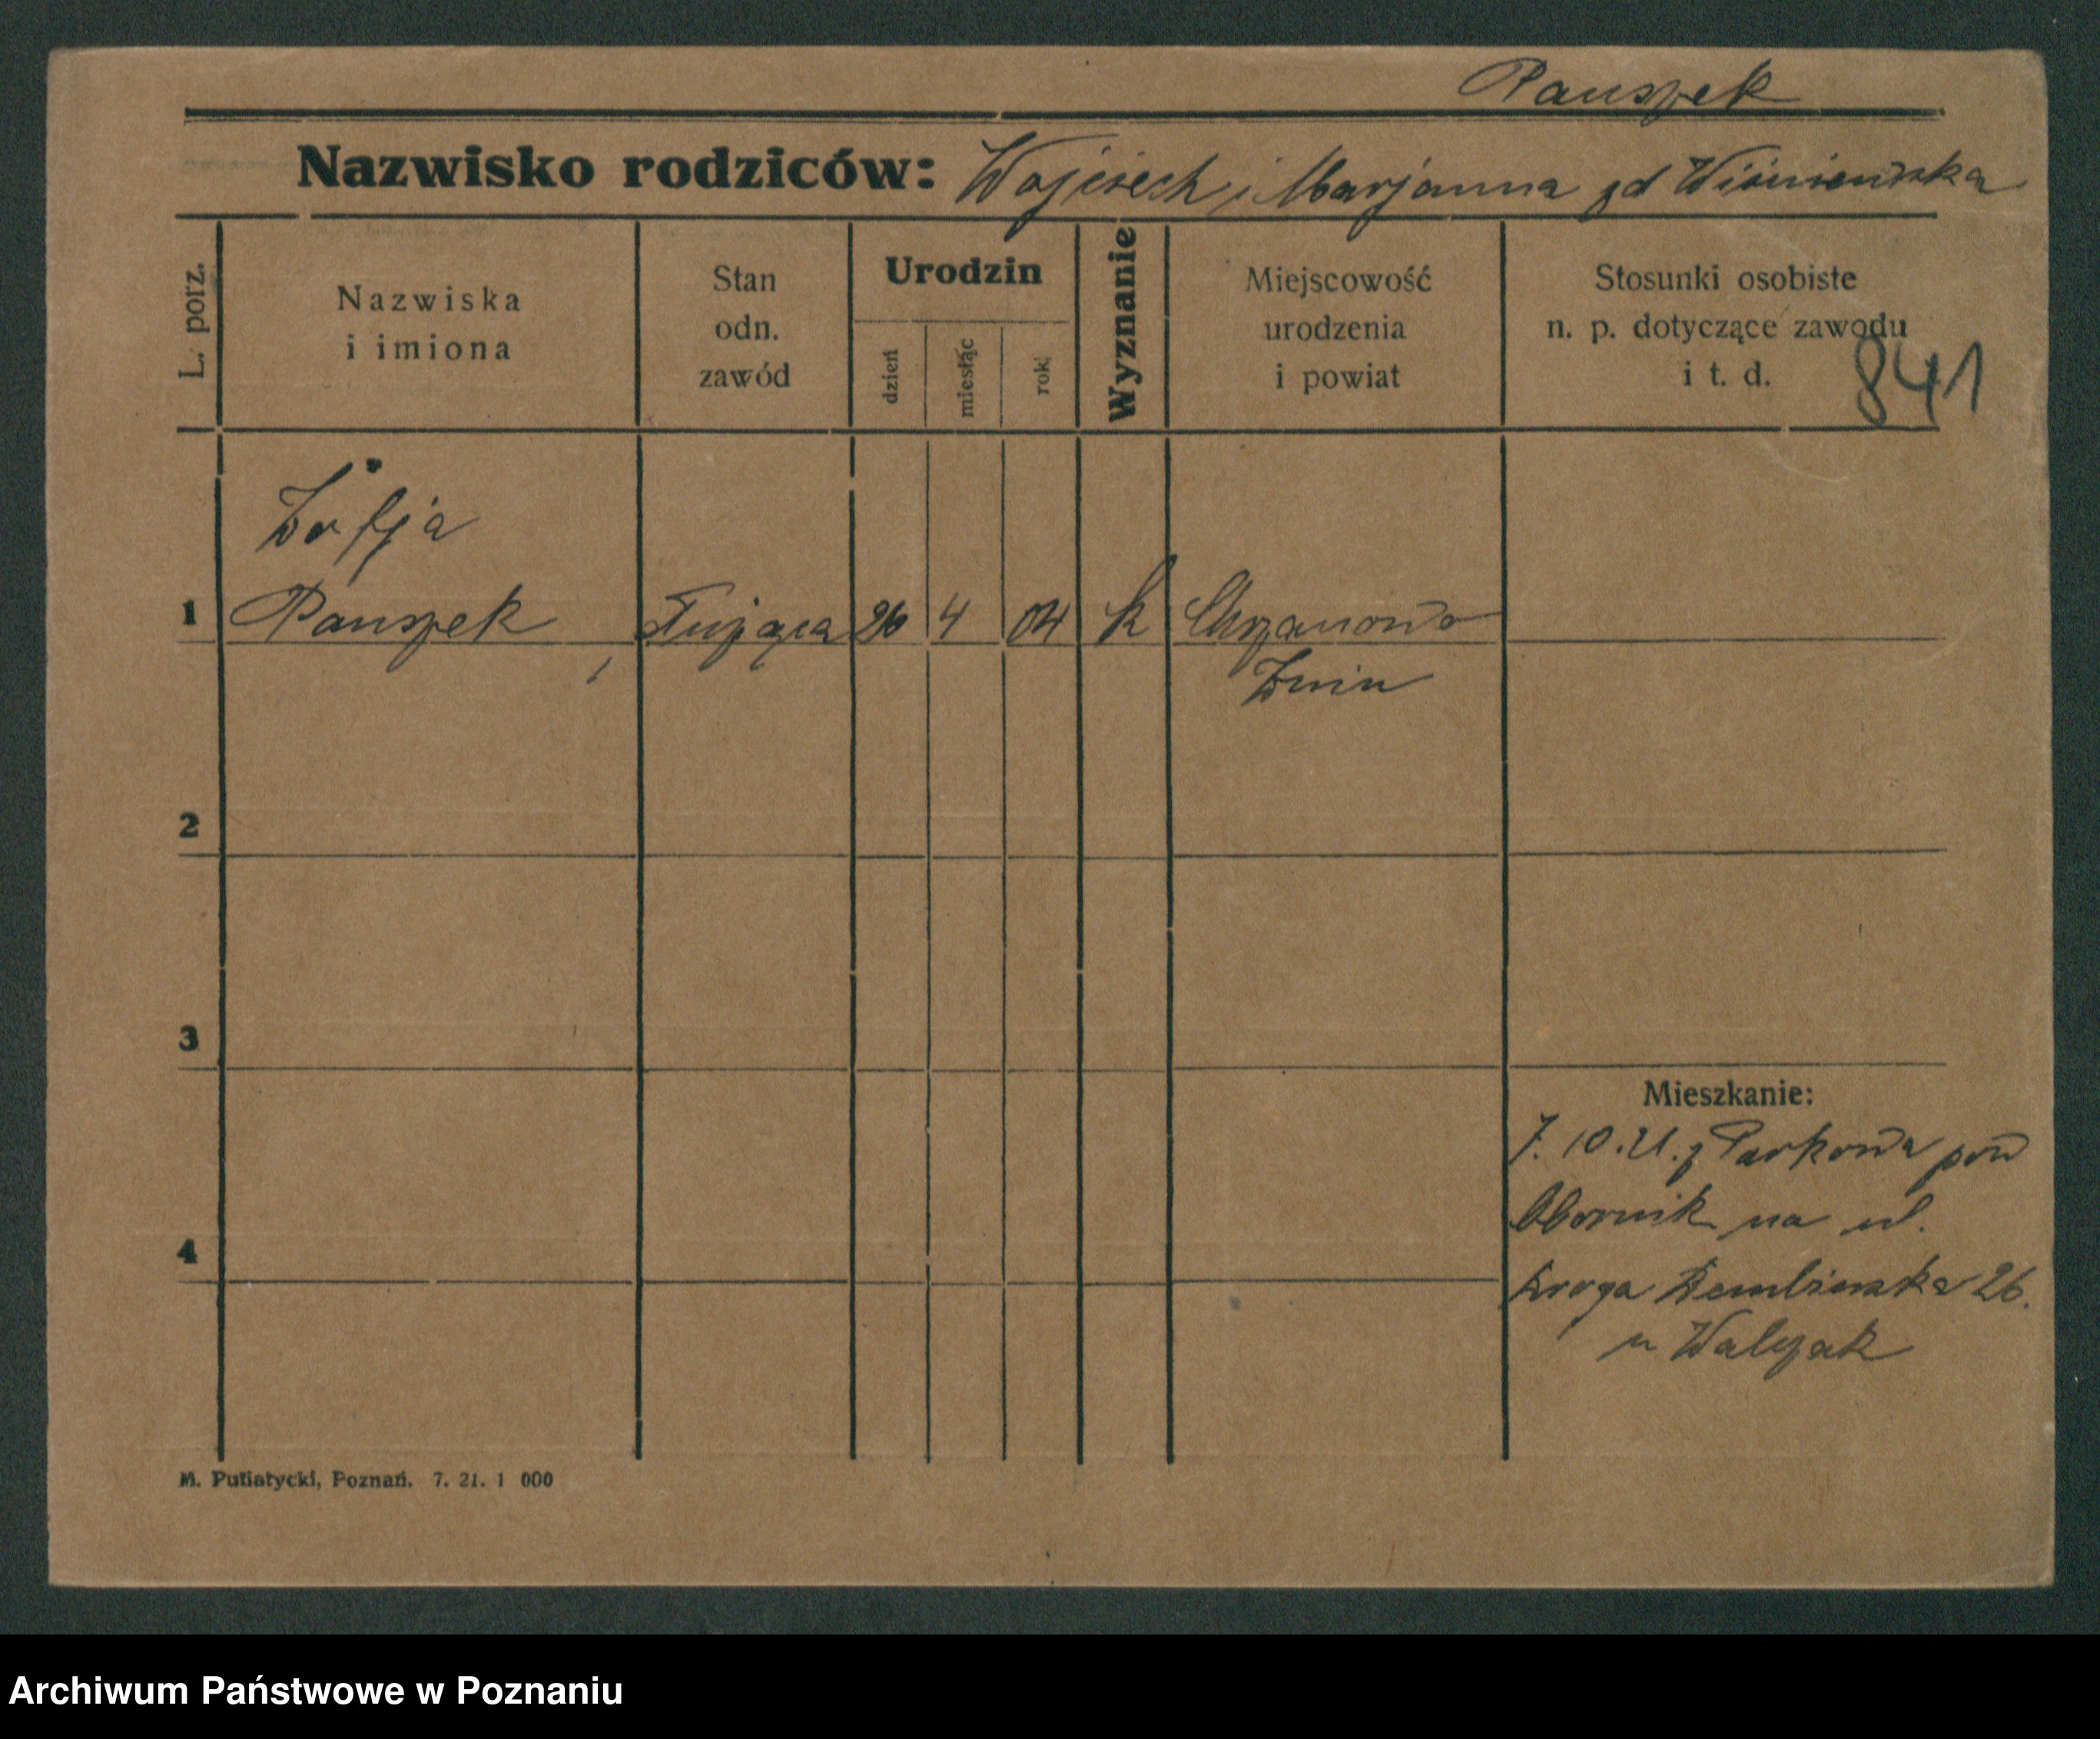 Pauszek
Nazwisko rodziców: Wojciech i Marjanna zd Wiśniewska
L. porz.
Nazwiska
i imiona
Stan
odn.
zawód
Urodzin
dzień
miesiąc
rok
Wyznanie
Miejscowość
urodzenia
i powiat
Stosunki osobiste
n. p. dotyczące zawodu
i t. d.
841
Zofja
1 Pauszek 26 4 04 k Chrzanowo
Żnin
2
3
Mieszkanie:
7.10.21. z Parkowa pow
Obornik na ul.
4
Droga Dembinska 26.
u Walczak
M. Putiatycki, Poznań. 7. 21. 1 000
Archiwum Państwowe w Poznaniu